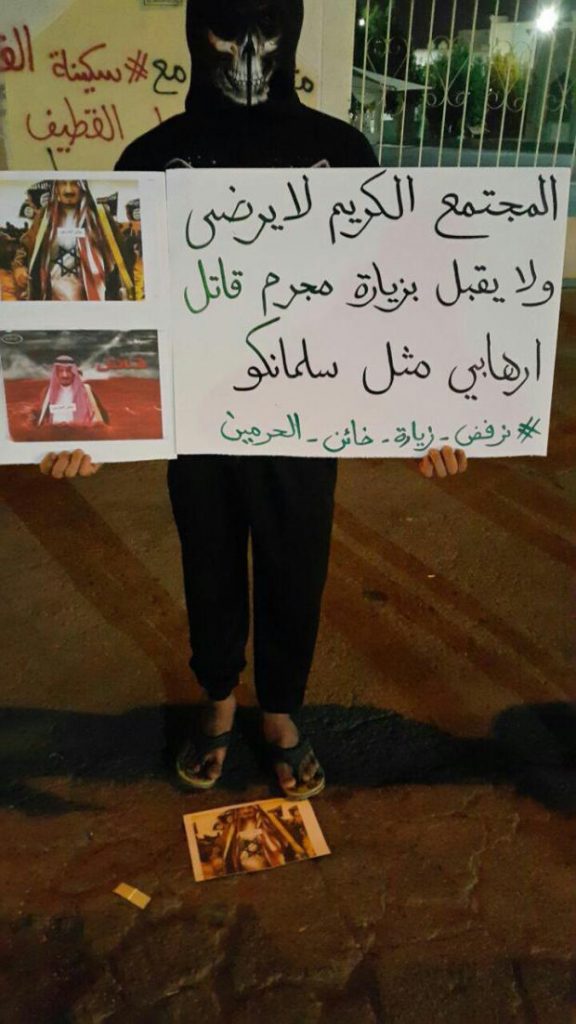 مع #سكينة
القطيف
المجتمع الكريم لا يرضى
ولا يقبل بزيارة مجرم قاتل
ارهابي مثل سلمانكو
#نرفض_زيارة_خائن_الحرمين